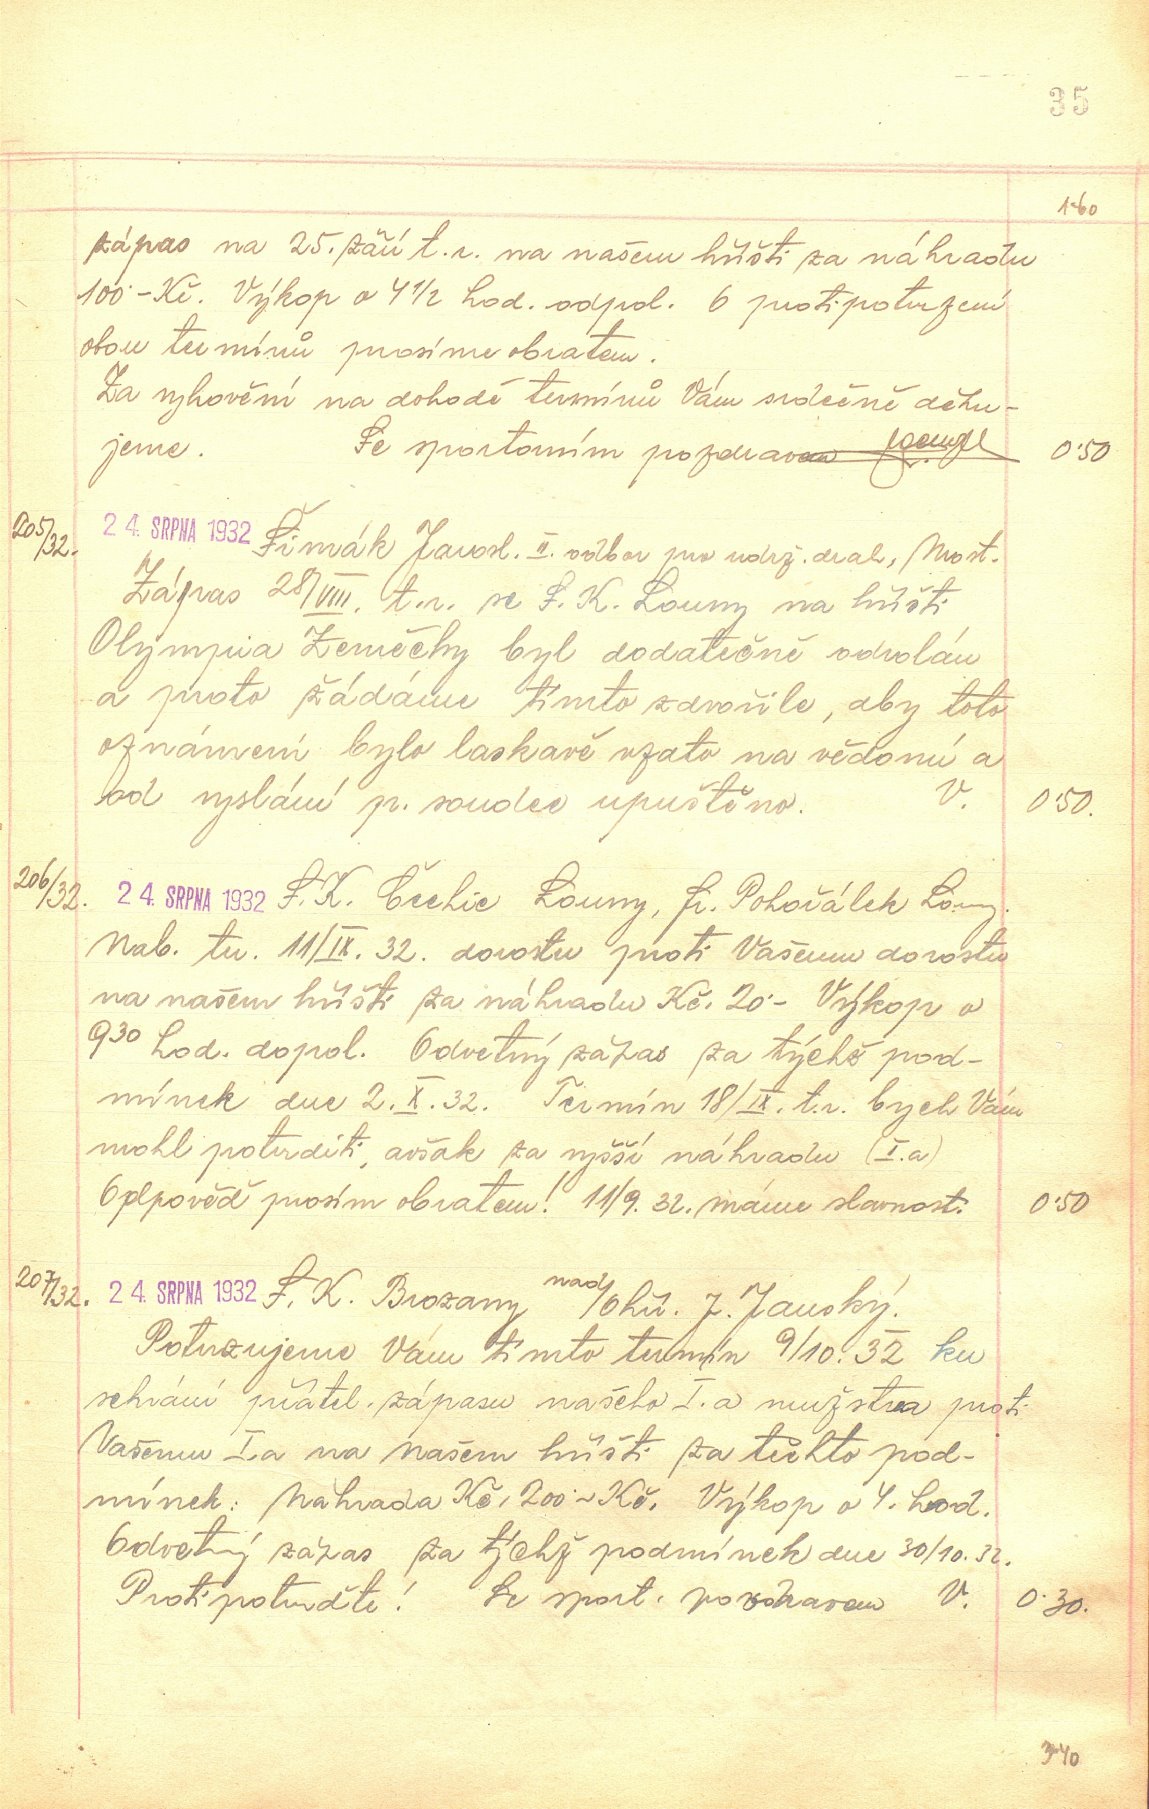 35
1·60
zápas na 25. září t.r. na našem hřišti za náhradu
100·- Kč. Výkop o 4 1/2 hod. odpol. O protipotvrzení
obou termínů prosíme obratem.
Za vyhovění na dohodě termínů Vám srdečně děku-
jeme. Se sportovním pozdravem 0·50
205/32. 24. SRPNA 1932 Šimák Jarosl. II. odbor pro udrž. drah, Most.
Zápas 28/VIII. t.r. se S.K. Louny na hřišti
Olympia Zeměchy byl dodatečně odvolán
a proto žádáme tímto zdvořile, aby toto
oznámení bylo laskavě vzato na vědomí a
od vyslání p. soudce upuštěno. V. 0·50.
206/32. 24. SRPNA 1932 S.K. Čechie Louny, Fr. Pohořálek Louny.
Nab. tr. 11/IX. 32. dorostu proti Vašemu dorostu
na našem hřišti za náhradu Kč. 20·- Výkop o
9 30 hod. dopol. Odvetný zápas za týchž pod-
mínek dne 2. X. 32. Termín 18/IX. t.r. bych Vám
mohl potvrditi, avšak za vyšší náhradu (I.a)
Odpověď prosím obratem! 11/9. 32. máme slavnost. 0·50
207/32. 24. SRPNA 1932 S.K. Brozany nad/Ohří. J. Janský.
Potvrzujeme Vám tímto termín 9/10. 32 ku
sehrání přátel. zápasu našeho I.a mužstva proti
Vašemu I.a na Našem hřišti za těchto pod-
mínek: Náhrada Kč. 200·- Kč. Výkop o 4. hod.
Odvetný zápas za týchž podmínek dne 30/10. 32.
Protipotvrďte! Se sport. pozdravem V. 0·30.
3·40